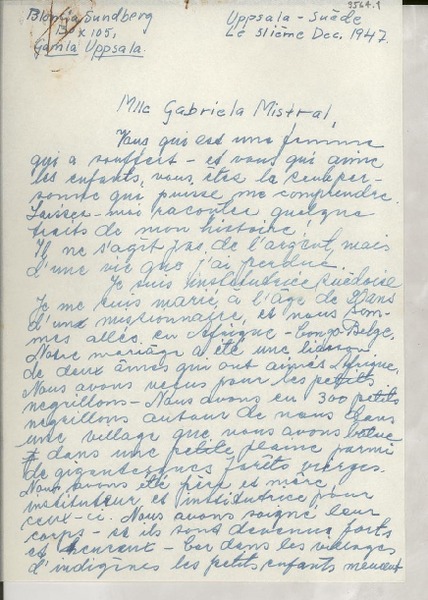 3564.1
Blomia Sundberg
Box 105,
Gamla Uppsala.
Uppsala - Suède
Le 31ième Dec. 1947.
Mlle Gabriela Mistral,
Vous qui est une femme
qui a souffert - et vous qui aime
les enfants, vous êtes la seule per-
sonne que puisse me comprendre.
Laissez-moi raconter quelque
traits de mon histoire!
Il ne s'agit pas de l'argent, mais
d'une vie que j'ai perdue.
Je suis institutrice suédoise
Je me suis marié, a l'âge de 20 ans
d'un missionnaire, et nous som-
mes allés en Afrique - Congo-Belge.
Notre mariage a été une liaison
de deux âmes qui ont aimés l'Afrique.
Nous avons vécus pour les petits
negrillons - Nous avons eu 300 petits
negrillons autour de nous dans
une village que nous avons
dans une petite plaine parmi
de gigantesques forêts vierges.
Nous avons été père et mère,
instituteur et institutrice pour
ceux-ci. Nous avons soigné leur
corps - et ils sont devenus forts
et heureux - Car dans les villages
d'indigènes les petits enfants meurent